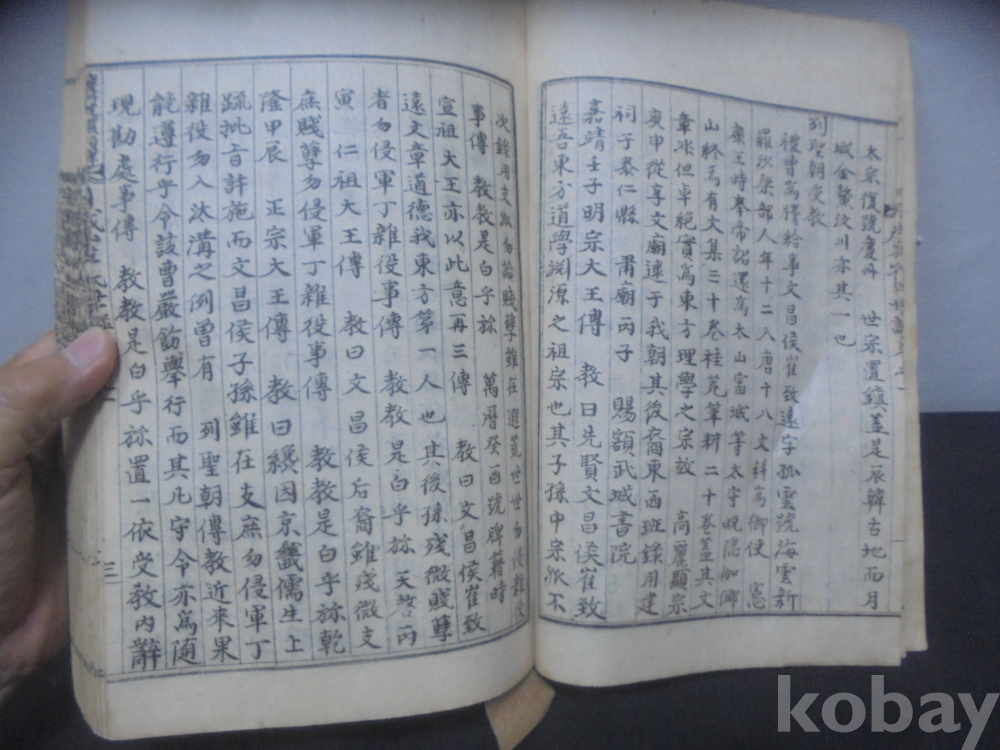 太宗復號慶州 世宗置鎭盖是辰韓古地而月
城金鰲汶川亦其一也
列聖朝受敎
禮曹爲謄給事文昌侯崔致遠字孤雲號海雲新
羅沙梁部人年十二入唐十八文科爲御使 憲
康王時奉帝詔還爲太山富城等太守晚隱伽倻
山終焉有文集三十卷桂苑筆耕二十卷盖其文
章非但卓絶實爲東方理學之宗故 高麗顯宗
庚申從享文廟逮于我朝其後裔東西班錄用建
祠于泰仁縣 肅廟丙子 賜額武城書院
嘉靖壬子明宗大王傳 敎曰先賢文昌侯崔致
遠吾東方道學淵源之祖宗也其子孫中宗派不
次錄用支派勿論賤孽雖在遐荒世世勿侵雜役
事傳 敎敎是白乎旀 萬曆癸酉號牌籍時
宣祖大王亦以此意再三傳 敎曰文昌侯崔致
遠文章道德我東方第一人也其後孫殘微賤孽
者勿侵軍丁雜役事傳 敎敎是白乎旀天啓丙
寅 仁祖大王傳 敎曰文昌侯后裔雖殘微支
庶賤孽勿侵軍丁雜役事傳 敎敎是白乎旀乾
隆甲辰 正宗大王傳 敎曰纔因京畿儒生上
疏批旨許施而文昌侯子孫雖在支庶勿侵軍丁
雜役勿入汰溝之例曾有 列聖朝傳敎近來果
能遵行乎令該曹嚴飭擧行而其凡守令亦爲隨
現勘處事傳 敎敎是白乎旀置一依受敎內辭
三